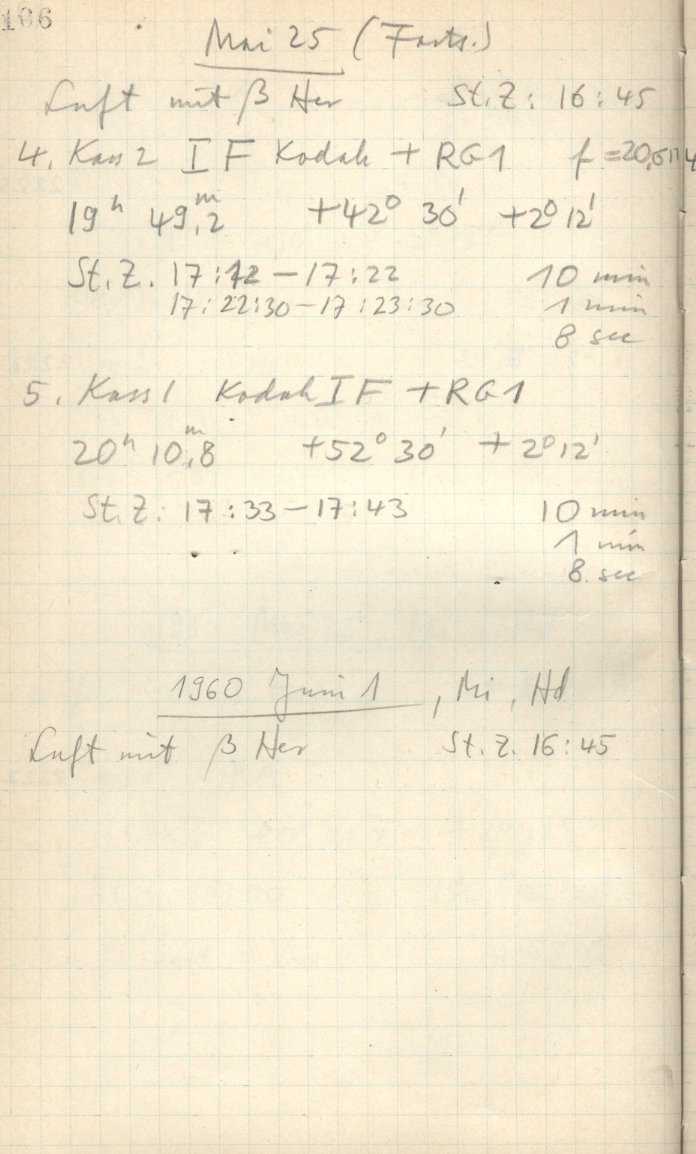 106
Mai 25 (Forts.)
Luft mit β Her St. Z: 16:45
4. Kass 2 IF Kodak + RG1 f =
19ʰ 49ᵐ,2 +42° 30' +2° 12'
St. Z. 17:12 – 17:22 10 min
17:22:30 – 17:23:30 1 min
8 sec
5. Kass 1 Kodak IF + RG1
20ʰ 10ᵐ,8 +52° 30' +2° 12'
St. Z: 17:33 – 17:43 10 min
1 min
8 sec
1960 Juni 1, Mi, Hd
Luft mit β Her St. Z. 16:45